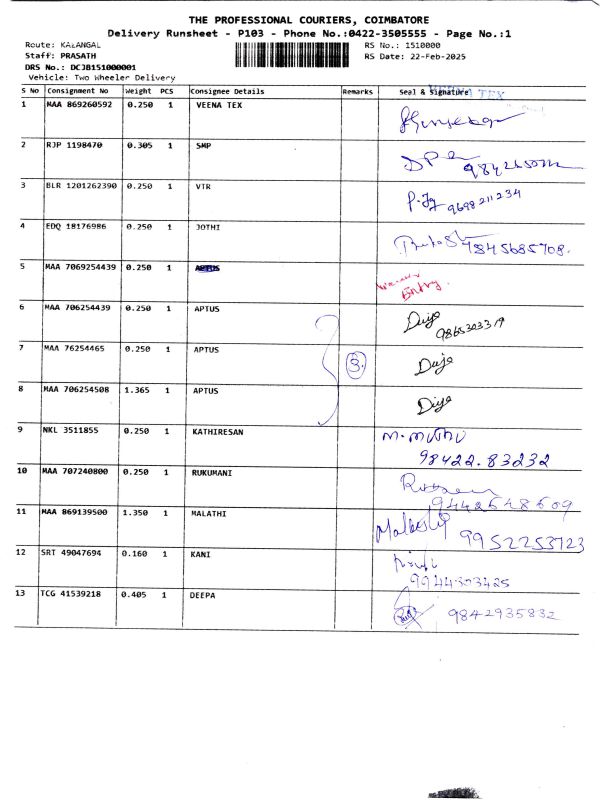 THE PROFESSIONAL COURIERS, COIMBATORE
Delivery Runsheet - P103 - Phone No.:0422-3505555 - Page No.:1
Route: KALANGAL
Staff: PRASATH
DRS No.: DCJB151000001
Vehicle: Two Wheeler Delivery
RS No.: 1510000
RS Date: 22-Feb-2025
S No Consignment No Weight PCS Consignee Details Remarks Seal & Signature
VEENA TEX
1 MAA 869260592 0.250 1 VEENA TEX
2 RJP 1198470 0.305 1 SMP
3 BLR 1201262390 0.250 1 VTR 9698211234
4 EDQ 18176986 0.250 1 JOTHI 9845685708.
5 MAA 7069254439 0.250 1 APTUS Entry.
6 MAA 706254439 0.250 1 APTUS 9865303319
7 MAA 76254465 0.250 1 APTUS 3.
8 MAA 706254508 1.365 1 APTUS
9 NKL 3511855 0.250 1 KATHIRESAN M. Muthu
98422.83232
10 MAA 707240800 0.250 1 RUKUMANI
9442648609
11 MAA 869139500 1.350 1 MALATHI Malathi
9952253723
12 SRT 49047694 0.160 1 KANI
9944303425
13 TCG 41539218 0.405 1 DEEPA 9842935832